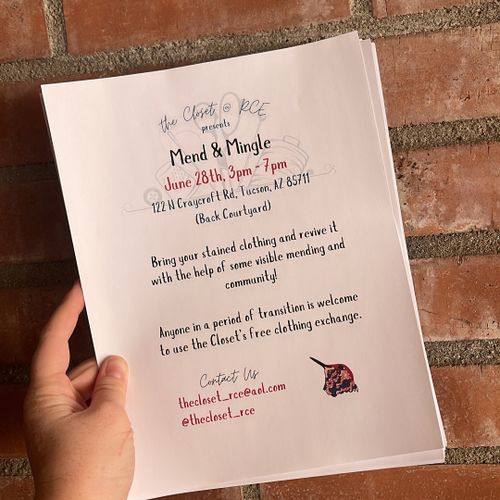 the Closet @ RCE
presents
Mend & Mingle
June 28th, 3pm - 7pm
122 N Craycroft Rd, Tucson, AZ 85711
(Back Courtyard)
Bring your stained clothing and revive it
with the help of some visible mending and
community!
Anyone in a period of transition is welcome
to use the Closet's free clothing exchange.
Contact Us
thecloset_rce@aol.com
@thecloset_rce